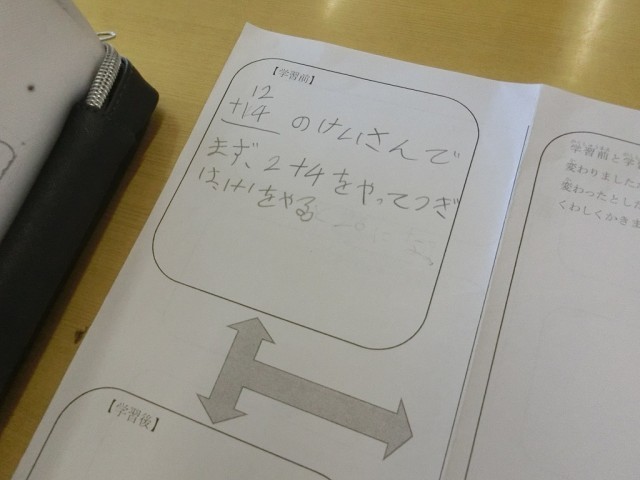 【学習前】
12
+14 のけいさんで
まず、2+4をやってつぎ
は、1+1をやる
【学習後】
学習前と学
変わりました
変わったとした
くわしくかきま